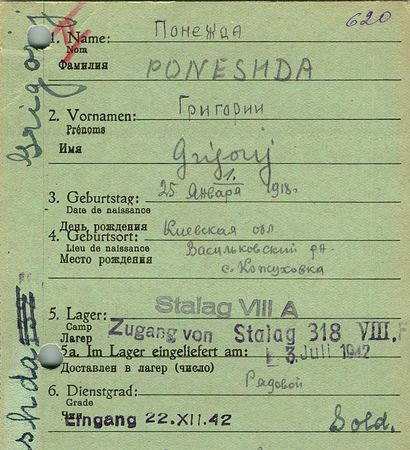 620
Понежда
1. Name:
Nom
Фамилия
PONESHDA
Григории
2. Vornamen:
Prénoms
Имя
Grigorij
1.
3. Geburtstag: 25 Января 1918г
Date de naissance
День рождения
Киевская обл
4. Geburtsort:
Lieu de naissance
Васильковский р-н
Место рождения
с. Кожуховка
5. Lager: Stalag VIII A
Camp
Лагер
Zugang von Stalag 318 VIII.F
5a. Im Lager eingeliefert am: 3. Juli 1942
Доставлен в лагер (число)
6. Dienstgrad: Рядовой
Grade
Чин
Eingang 22.XII.42
Sold.
Grigorij
shda